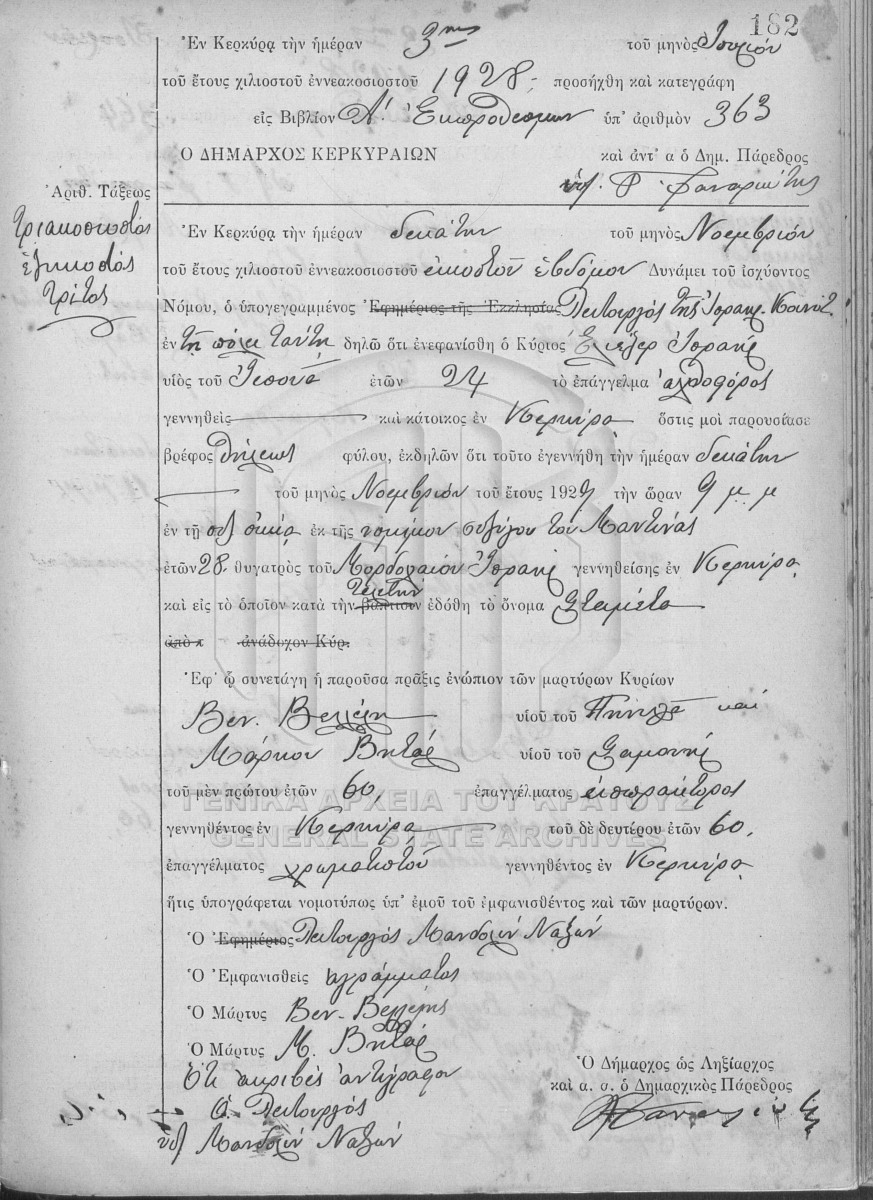 182
Ἐν Κερκύρᾳ τὴν ἡμέραν 3ης τοῦ μηνὸς
τοῦ ἔτους χιλιοστοῦ ἐννεακοσιοστοῦ 1928 προσήχθη καὶ κατεγράφη
εἰς Βιβλίον Α' Ἐκπροθέσμων ὑπ' ἀριθμὸν 363
Ο ΔΗΜΑΡΧΟΣ ΚΕΡΚΥΡΑΙΩΝ καὶ ἀντ' α ὁ Δημ. Πάρεδρος
Ἀριθ. Τάξεως
τριακοσιοστὸς
ἑξηκοστὸς
τρίτος
Ἐν Κερκύρᾳ τὴν ἡμέραν δεκάτην τοῦ μηνὸς Νοεμβρίου
τοῦ ἔτους χιλιοστοῦ ἐννεακοσιοστοῦ εἰκοστοῦ ἑβδόμου Δυνάμει τοῦ ἰσχύοντος
Νόμου, ὁ ὑπογεγραμμένος Ἐφημέριος τῆς Ἐκκλησίας Λειτουργὸς τῆς Ἰσραηλ. Κοινότ.
ἐν τῇ πόλει ταύτῃ δηλῶ ὅτι ἐνεφανίσθη ὁ Κύριος Ἐλιέζερ Ἰσραήλ
υἱὸς τοῦ Ἰεσουᾶ ἐτῶν 24 τὸ ἐπάγγελμα ἀχθοφόρος
γεννηθεὶς καὶ κάτοικος ἐν Κερκύρᾳ ὅστις μοὶ παρουσίασε
βρέφος θήλεως φύλου, ἐκδηλῶν ὅτι τοῦτο ἐγεννήθη τὴν ἡμέραν δεκάτην
τοῦ μηνὸς Νοεμβρίου τοῦ ἔτους 1927 τὴν ὥραν 9 μ μ
ἐν τῇ οἰκίᾳ ἐκ τῆς νομίμου συζύγου του Μαντίνας
ἐτῶν 28 θυγατρὸς τοῦ Μορδοχαίου Ἰσραήλ γεννηθείσης ἐν Κερκύρᾳ
τελετὴν
καὶ εἰς τὸ ὁποῖον κατὰ τὴν βάπτισιν ἐδόθη τὸ ὄνομα Σταμέτα
ἀπὸ τ ἀνάδοχον Κύρ.
Ἐφ' ᾧ συνετάγη ἡ παροῦσα πρᾶξις ἐνώπιον τῶν μαρτύρων Κυρίων
Βεν. Βελλέλη υἱοῦ τοῦ καὶ
Μάρκου Βιτάλ υἱοῦ τοῦ Σαμουήλ
τοῦ μὲν πρώτου ἐτῶν 60, ἐπαγγέλματος εἰσπράκτορος
γεννηθέντος ἐν Κερκύρᾳ τοῦ δὲ δευτέρου ἐτῶν 60,
ἐπαγγέλματος χρωματιστοῦ γεννηθέντος ἐν Κερκύρᾳ
ἥτις ὑπογράφεται νομοτύπως ὑπ' ἐμοῦ τοῦ ἐμφανισθέντος καὶ τῶν μαρτύρων.
Ὁ Ἐφημέριος Λειτουργὸς Μανδολίν Ναχών
Ὁ Ἐμφανισθεὶς ἀγράμματος
Ὁ Μάρτυς Βεν. Βελλέλης
Ὁ Μάρτυς Μ. Βιτάλ
Ὅτι ἀκριβὲς ἀντίγραφον
Ὁ Λειτουργὸς
Μανδολίν Ναχών
Ὁ Δήμαρχος ὡς Ληξίαρχος
καὶ α. α. ὁ Δημαρχικὸς Πάρεδρος
ΓΕΝΙΚΑ ΑΡΧΕΙΑ ΤΟΥ ΚΡΑΤΟΥΣ
GENERAL STATE ARCHIVES